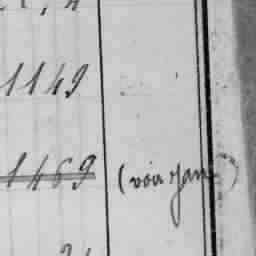 1149
1469 (voir Jane)